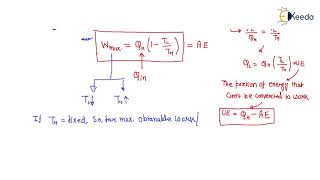 Ekeeda
W_max = Q_H (1 - T_L/T_H) = AE
Q_in
T_L↓ T_H ↑
If T_H = fixed, So for max. obtainable work/
Q_L/Q_H = T_L/T_H
Q_L = Q_H (T_L/T_H) = UE
The portion of energy that
Can't be converted to work
UE = Q_H - AE